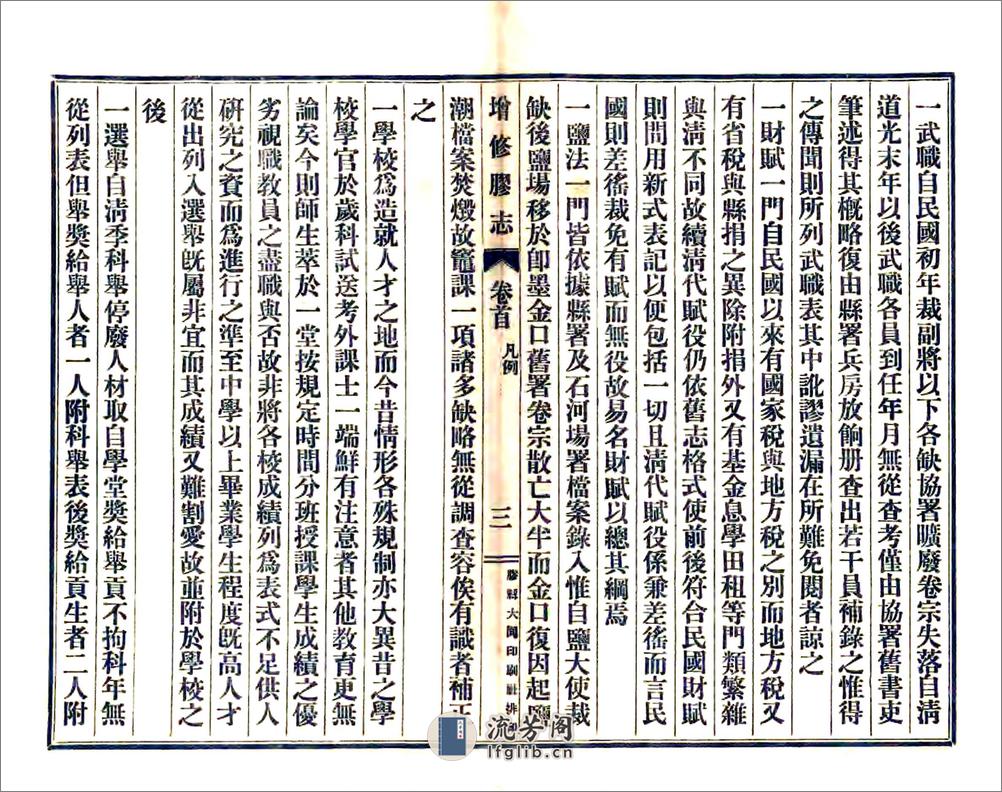 一武職自民國初年裁副將以下各缺協署曠廢卷宗失落自淸
道光末年以後武職各員到任年月無從查考僅由協署舊書吏
筆述得其槪略復由縣署兵房放餉册查出若干員補錄之惟得
之傳聞則所列武職表其中訛謬遺漏在所難免閱者諒之
一財賦一門自民國以來有國家稅與地方稅之別而地方稅又
有省稅與縣捐之異除附捐外又有基金息學田租等門類繁雜
與淸不同故續淸代賦役仍依舊志格式使前後符合民國財賦
則間用新式表記以便包括一切且淸代賦役係兼差徭而言民
國則差徭裁免有賦而無役故易名財賦以總其綱焉
一鹽法一門皆依據縣署及石河場署檔案錄入惟自鹽大使裁
缺後鹽場移於卽墨金口舊署卷宗散亡大半而金口復因起鹽
增修膠志 卷首 凡例 三 膠縣大同印刷社排印
潮檔案焚燬故竈課一項諸多缺略無從調查容俟有識者補正
之
一學校爲造就人才之地而今昔情形各殊規制亦大異昔之學
校學官於歲科試送考外課士一端鮮有注意者其他敎育更無
論矣今則師生萃於一堂按規定時間分班授課學生成績之優
劣視職敎員之盡職與否故非將各校成績列爲表式不足供人
硏究之資而爲進行之準至中學以上畢業學生程度旣高人才
從出列入選舉旣屬非宜而其成績又難割愛故並附於學校之
後
一選舉自淸季科舉停廢人材取自學堂獎給舉貢不拘科年無
從列表但舉獎給舉人者一人附科舉表後獎給貢生者二人附
流芳阁
lfglib.cn